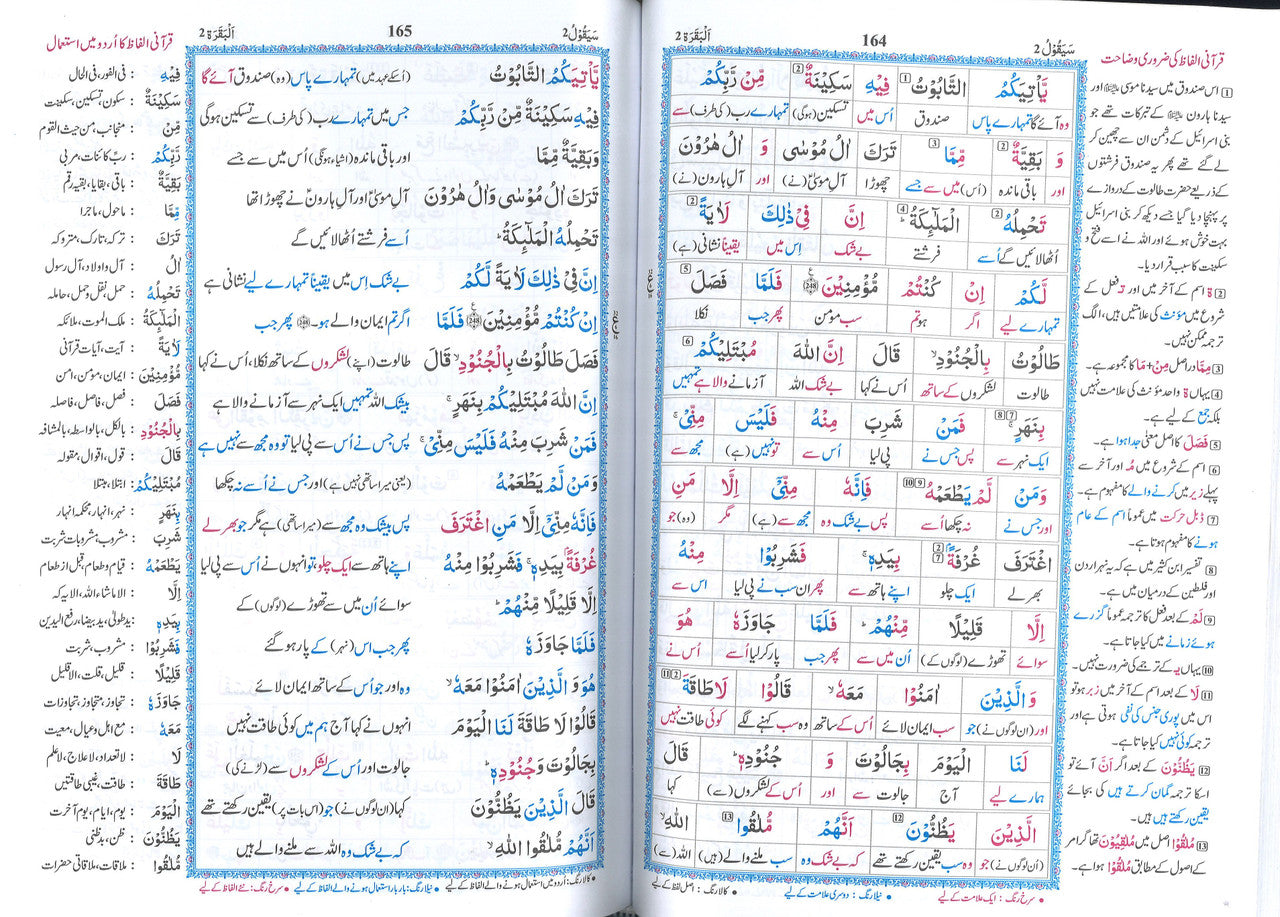 سَيَقُوْلُ 2
164
اَلْبَقَرَة 2
قرآنی الفاظ کی ضروری وضاحت
1 اس صندوق میں سیدنا موسیٰ اور
سیدنا ہارون کے تبرکات تھے جو
بنی اسرائیل کے دشمن ان سے چھین کر
لے گئے تھے پھر یہ صندوق فرشتوں
کے ذریعے حضرت طالوت کے دروازے
پر پہنچا دیا گیا جسے دیکھ کر بنی اسرائیل
بہت خوش ہوئے اور اللہ نے اسے فتح و
سکینت کا سبب قرار دیا۔
2 ة اسم کے آخر میں اور تـ فعل کے
شروع میں مؤنث کی علامتیں ہیں، الگ
ترجمہ ممکن نہیں۔
3 مِمَّا دراصل مِنْ+مَا کا مجموعہ ہے۔
4 یہاں ة واحد مؤنث کی علامت نہیں
بلکہ جمع کے لیے ہے۔
5 فَصَلَ کا اصل معنیٰ جدا ہوا ہے۔
6 اسم کے شروع میں مُـ اور آخر سے
پہلے زیر میں کرنے والے کا مفہوم ہے۔
7 ڈبل حرکت میں عموماً اسم کے عام
ہونے کا مفہوم ہوتا ہے۔
8 تفسیر ابن کثیر میں ہے کہ یہ نہر اردن
اور فلسطین کے درمیان میں ہے۔
9 لَمْ کے بعد فعل کا ترجمہ عموماً گزرے
ہوئے زمانے میں کیا جاتا ہے۔
10 یہاں یـ کے ترجمے کی ضرورت نہیں۔
11 لَا کے بعد اسم کے آخر میں زبر ہو تو
اس میں پوری جنس کی نفی ہوتی ہے اور
ترجمہ کوئی نہیں کیا جاتا ہے۔
12 يَظُنُّوْنَ کے بعد اگر اَنَّ آئے تو
اسکا ترجمہ گمان کرتے ہیں کی بجائے
یقین رکھتے ہیں ہیں۔
13 مُلٰقُوْا اصل میں مُلَقِيُوْنَ تھا گرامر
کے اصول کے مطابق مُلٰقُوْا ہوا ہے۔
يَّاْتِيَكُمُ التَّابُوْتُ 1 فِيْهِ سَكِيْنَةٌ 2 مِّنْ رَّبِّكُمْ
وہ آئے گا تمہارے پاس صندوق اُس میں تسکین (ہوگی) تمہارے رب (کی طرف) سے
وَ بَقِيَّةٌ 2 مِّمَّا 3 تَرَكَ اٰلُ مُوْسٰى وَ اٰلُ هٰرُوْنَ
اور باقی ماندہ (اُس) میں سے جسے چھوڑا آلِ موسیٰ (نے) اور آلِ ہارون (نے)
تَحْمِلُهُ 2 الْمَلٰٓئِكَةُ 4 اِنَّ فِيْ ذٰلِكَ لَاٰيَةً 2
اُٹھالائیں گے اُسے فرشتے بے شک اِس میں یقیناً نشانی (ہے)
لَّكُمْ اِنْ كُنْتُمْ مُّؤْمِنِيْنَ 248 فَلَمَّا فَصَلَ 5
تمہارے لیے اگر ہو تم سب مومن پھر جب نکلا
طَالُوْتُ بِالْجُنُوْدِ قَالَ اِنَّ اللّٰهَ مُبْتَلِيْكُمْ 6
طالوت لشکروں کے ساتھ اُس نے کہا بے شک اللہ آزمانے والا ہے تمہیں
بِنَهَرٍ 7 8 فَمَنْ شَرِبَ مِنْهُ فَلَيْسَ مِنِّيْ
ایک نہر سے پس جس نے پی لیا اُس سے تو نہیں (ہے) مجھ سے
وَمَنْ لَّمْ يَطْعَمْهُ 9 10 فَاِنَّهٗ مِنِّيْٓ اِلَّا مَنِ
اور جس نے نہ چکھا اُسے پس بے شک وہ مجھ سے (ہے) مگر (وہ) جو
اغْتَرَفَ غُرْفَةً 2 7 بِيَدِهٖ فَشَرِبُوْا مِنْهُ
بھر لے ایک چلو اپنے ہاتھ سے پھر ان سب نے پی لیا اس سے
اِلَّا قَلِيْلًا مِّنْهُمْ فَلَمَّا جَاوَزَهٗ هُوَ
سوائے تھوڑے (لوگوں کے) اُن میں سے پھر جب پار کر لیا اُسے اُس نے
وَالَّذِيْنَ اٰمَنُوْا مَعَهٗ قَالُوْا لَا طَاقَةَ 2 11
اور (ان لوگوں نے) جو سب ایمان لائے اُس کے ساتھ وہ سب کہنے لگے کوئی طاقت نہیں
لَنَا الْيَوْمَ بِجَالُوْتَ وَ جُنُوْدِهٖ قَالَ
ہمارے لیے آج جالوت سے اور اُس کے لشکروں (سے) کہا
الَّذِيْنَ يَظُنُّوْنَ 12 اَنَّهُمْ مُّلٰقُوا 13 اللّٰهِ
(اُن لوگوں نے) جو وہ سب یقین رکھتے تھے کہ بے شک وہ سب ملنے والے (ہیں) اللہ (سے)
● سرخ رنگ : ایک علامت کے لیے ● نیلا رنگ : دوسری علامت کے لیے ● کالا رنگ : اصل لفظ کے لیے
سَيَقُوْلُ 2
165
اَلْبَقَرَة 2
يَّاْتِيَكُمُ التَّابُوْتُ (اُسکے عہد میں) تمہارے پاس (وہ) صندوق آئے گا
فِيْهِ سَكِيْنَةٌ مِّنْ رَّبِّكُمْ جس میں تمہارے رب (کی طرف) سے تسکین ہوگی
وَبَقِيَّةٌ مِّمَّا اور باقی ماندہ (اشیاء ہونگی) اُس میں سے جسے
تَرَكَ اٰلُ مُوْسٰى وَاٰلُ هٰرُوْنَ آلِ موسیٰؑ اور آلِ ہارونؑ نے چھوڑا تھا
تَحْمِلُهُ الْمَلٰٓئِكَةُ اُسے فرشتے اُٹھالائیں گے
اِنَّ فِيْ ذٰلِكَ لَاٰيَةً لَّكُمْ بے شک اِس میں یقیناً تمہارے لیے نشانی ہے
اِنْ كُنْتُمْ مُّؤْمِنِيْنَ 248 فَلَمَّا اگر تم ایمان والے ہو۔ 248 پھر جب
فَصَلَ طَالُوْتُ بِالْجُنُوْدِ قَالَ طالوت (اپنے) لشکروں کے ساتھ نکلا، اُس نے کہا
اِنَّ اللّٰهَ مُبْتَلِيْكُمْ بِنَهَرٍ بیشک اللہ تمہیں ایک نہر سے آزمانے والا ہے
فَمَنْ شَرِبَ مِنْهُ فَلَيْسَ مِنِّيْ پس جس نے اُس سے پی لیا تو وہ مجھ سے نہیں ہے
وَمَنْ لَّمْ يَطْعَمْهُ (یعنی میرا ساتھی نہیں ہے) اور جس نے اُسے نہ چکھا
فَاِنَّهٗ مِنِّيْٓ اِلَّا مَنِ اغْتَرَفَ پس بیشک وہ مجھ سے (میرا ساتھی) ہے مگر جو بھر لے
غُرْفَةً بِيَدِهٖ فَشَرِبُوْا مِنْهُ اپنے ہاتھ سے ایک چلو، تو انہوں نے اُس سے پی لیا
اِلَّا قَلِيْلًا مِّنْهُمْ سوائے اُن میں سے تھوڑے (لوگوں) کے
فَلَمَّا جَاوَزَهٗ پھر جب اس (نہر) کے پار ہو گئے
هُوَ وَالَّذِيْنَ اٰمَنُوْا مَعَهٗ وہ اور جو اُس کے ساتھ ایمان لائے
قَالُوْا لَا طَاقَةَ لَنَا الْيَوْمَ انہوں نے کہا آج ہم میں کوئی طاقت نہیں
بِجَالُوْتَ وَجُنُوْدِهٖ جالوت اور اُس کے لشکروں سے (لڑنے کی)
قَالَ الَّذِيْنَ يَظُنُّوْنَ کہا (ان لوگوں نے) جو (اس بات پر) یقین رکھتے تھے
اَنَّهُمْ مُّلٰقُوا اللّٰهِ کہ بے شک وہ اللہ سے ملنے والے ہیں
● کالا رنگ : اُردو میں استعمال ہونے والے الفاظ کے لیے ● نیلا رنگ : بار بار استعمال ہونے والے الفاظ کے لیے ● سرخ رنگ : نئے الفاظ کے لیے
قرآنی الفاظ کا اُردو میں استعمال
فِيْهِ : فی الفور، فی الحال
سَكِيْنَةٌ : سکون، تسکین، سکینت
مِّنْ : منجانب، من حیث القوم
رَّبِّكُمْ : ربّ کائنات، مربی
بَقِيَّةٌ : باقی، بقایا، بقیہ رقم
مِّمَّا : ماحول، ماجرا
تَرَكَ : ترکہ، تارک، متروکہ
اٰلُ : آل و اولاد، آلِ رسول
تَحْمِلُهُ : حمل، نقل و حمل، حاملہ
الْمَلٰٓئِكَةُ : ملک الموت، ملائکہ
لَاٰيَةً : آیت، آیاتِ قرآنی
مُّؤْمِنِيْنَ : ایمان، مومن، امن
فَصَلَ : فصل، فاصل، فاصلہ
بِالْجُنُوْدِ : بالکل، بالواسطہ، بالمشافہ
قَالَ : قول، اقوال، مقولہ
مُبْتَلِيْكُمْ : ابتلا، مبتلا
بِنَهَرٍ : نہر، انہار، محکمہ انہار
شَرِبَ : مشروب، مشروبات، شربت
يَطْعَمْهُ : قیام و طعام، قبل از طعام
اِلَّا : الا ماشاء اللہ، الا یہ کہ
بِيَدِهٖ : ید طولیٰ، ید بیضا، رفع الیدین
فَشَرِبُوْا : مشروب، شربت
قَلِيْلًا : قلیل، قلت، الا قلیل
جَاوَزَهٗ : تجاوز، متجاوز، تجاوزات
مَعَهٗ : مع اہل و عیال، معیت
لَا : لاتعداد، لاعلاج، لاعلم
طَاقَةَ : طاقت، غیبی طاقتیں
الْيَوْمَ : یوم، ایام، یوم آخرت
يَظُنُّوْنَ : ظن، بدظنی
مُلٰقُوا : ملاقات، ملاقاتی حضرات